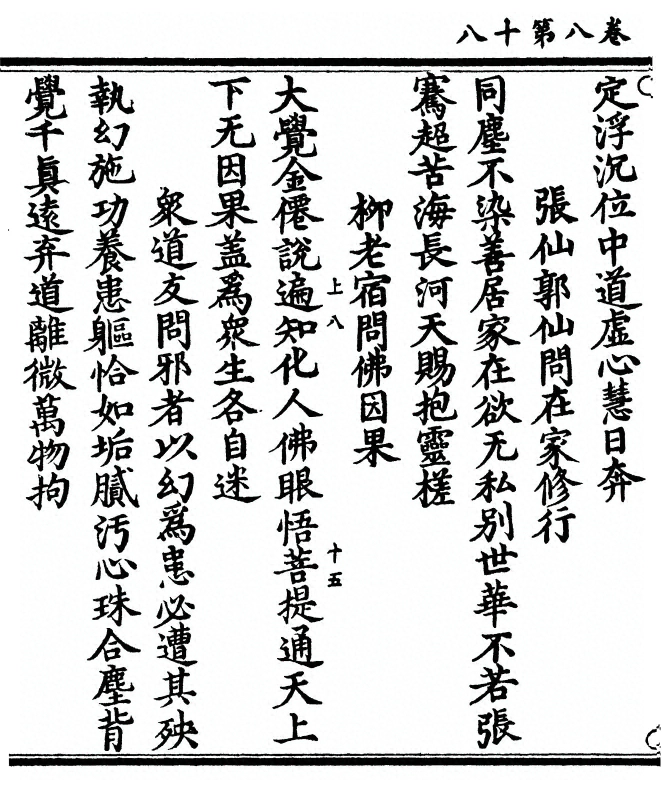 卷八第十八
定浮沉位中道虛心慧日奔
張仙郭仙問在家修行
同塵不染善居家在欲无私別世華不若張
騫超苦海長河天賜抱靈槎
柳老宿問佛因果
上八
十五
大覺金僊說遍知化人佛眼悟菩提通天上
下无因果盖爲衆生各自迷
衆道友問邪者以幻爲患必遭其殃
執幻施功養患軀恰如垢膩汚心珠合塵背
覺千眞遠弃道離微萬物拘